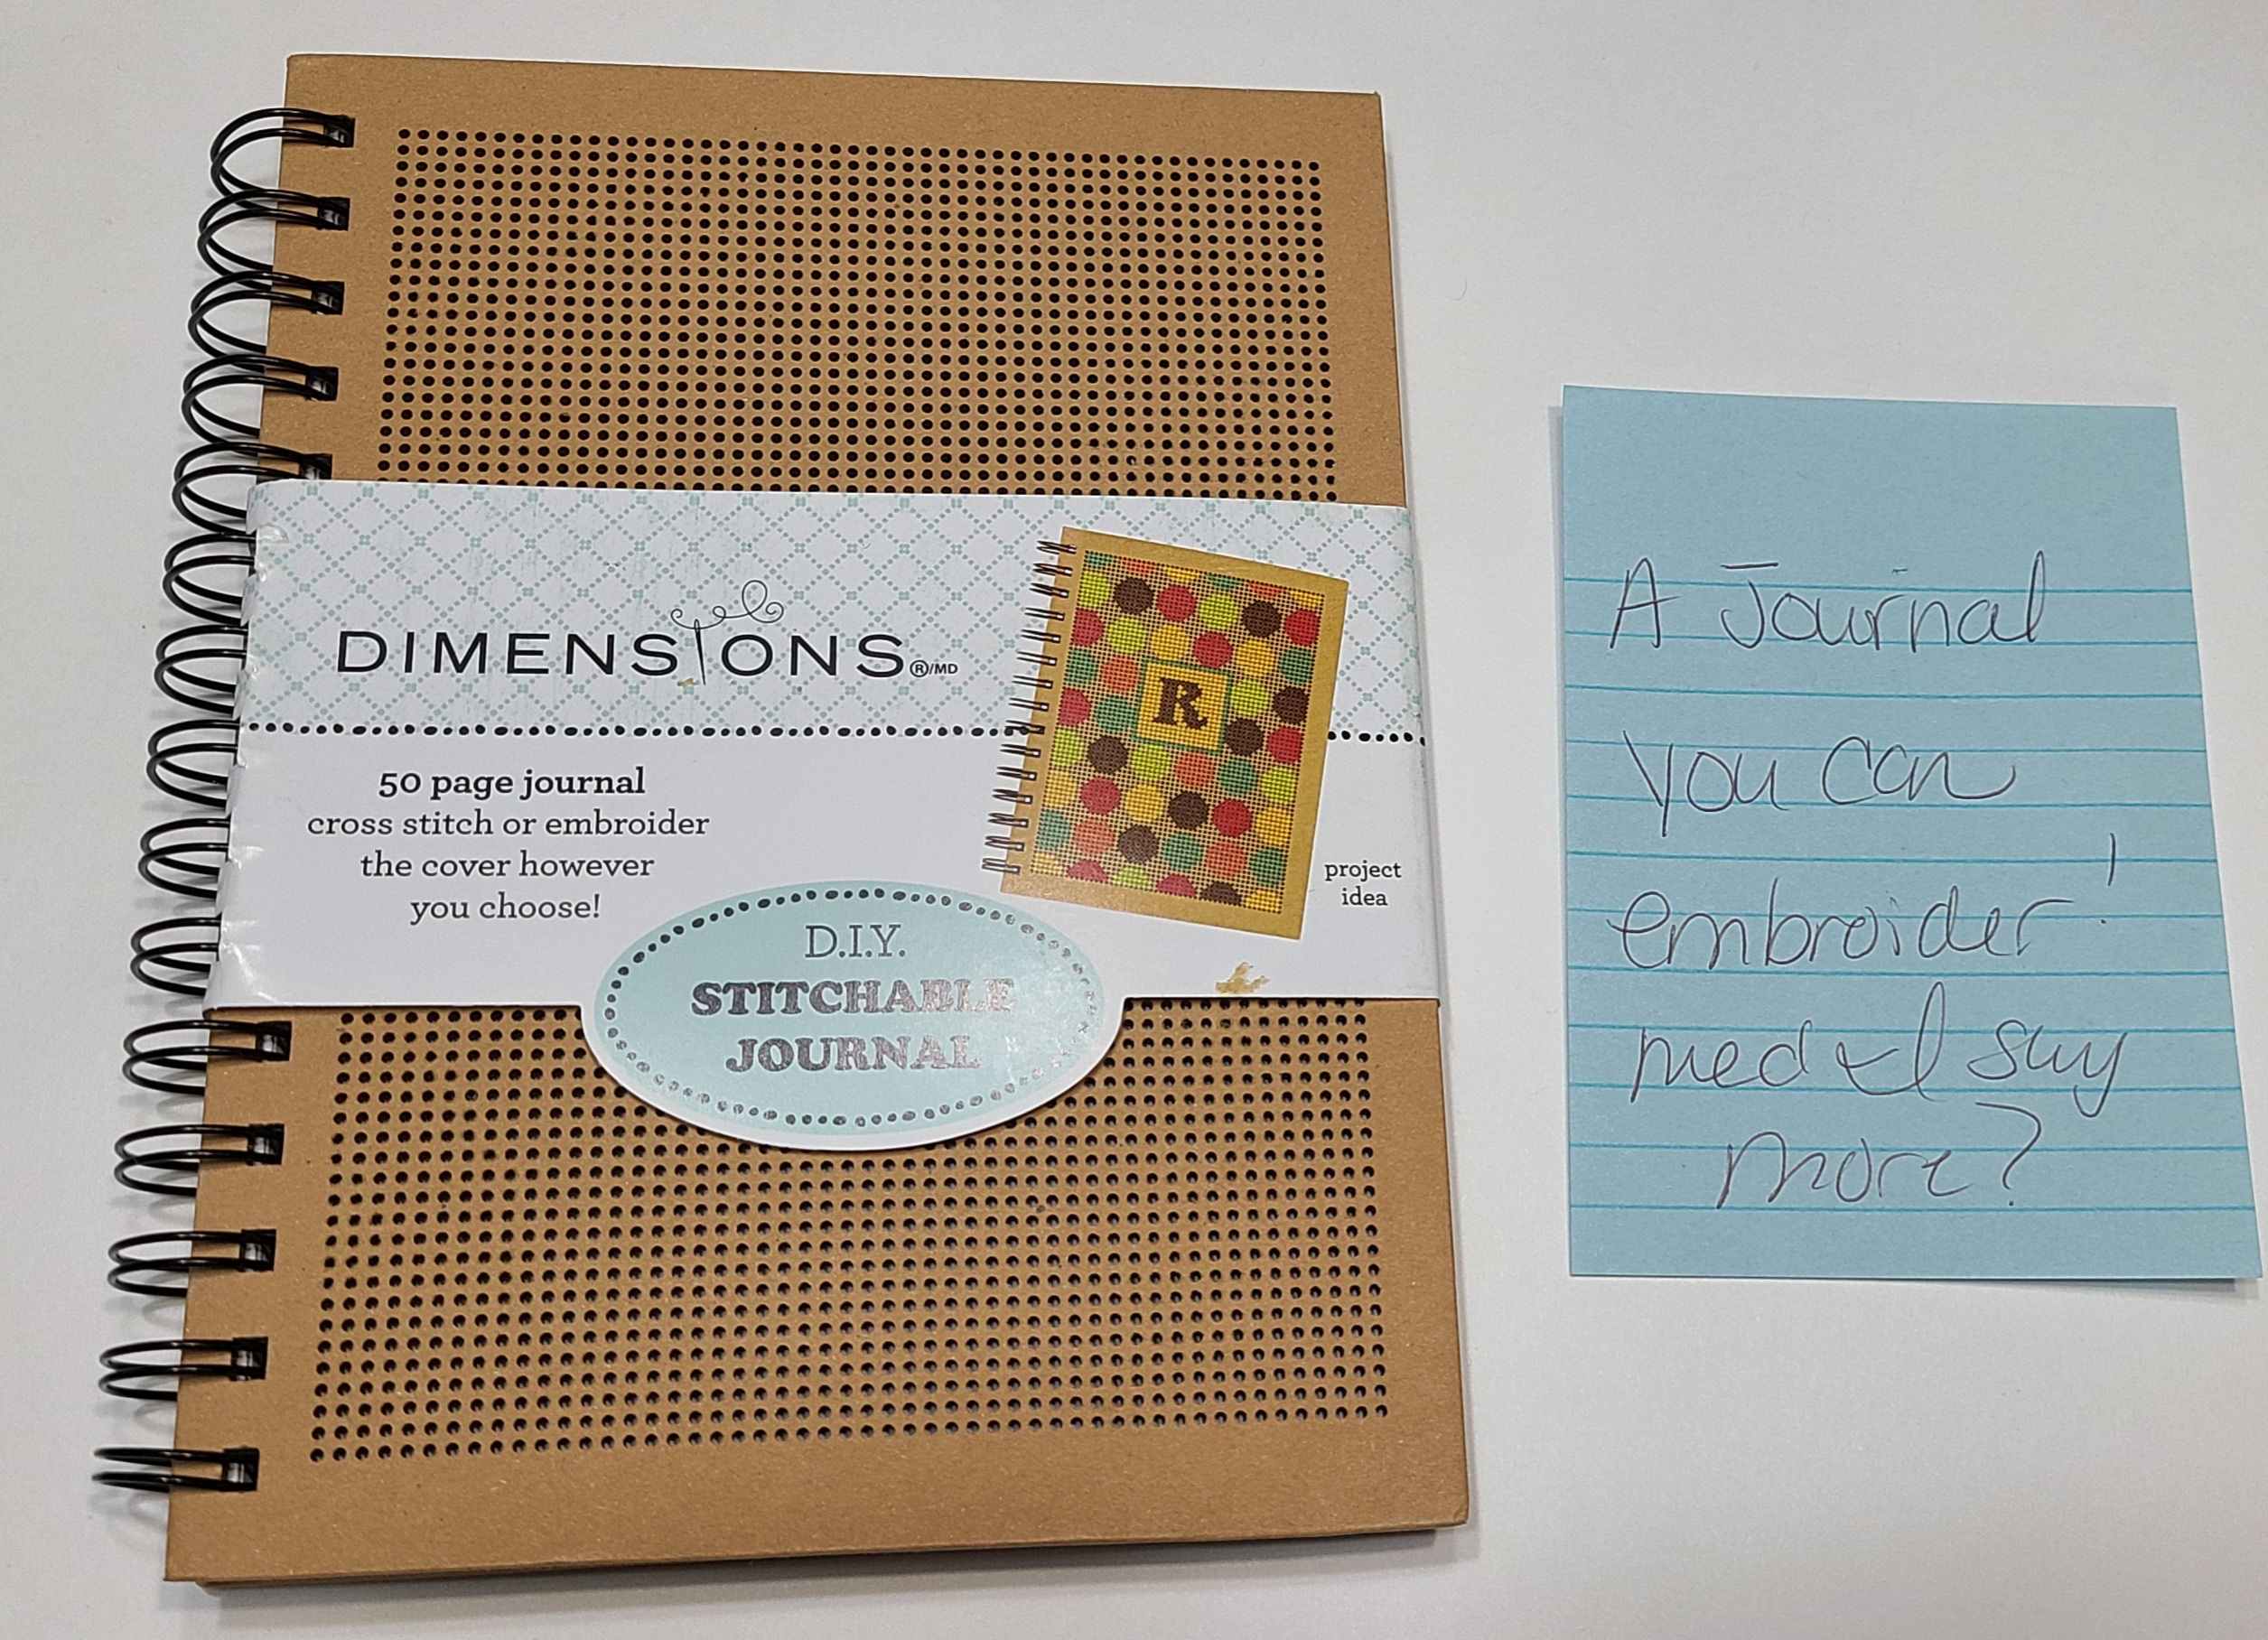 DIMENSIONS®/MD
50 page journal
cross stitch or embroider
the cover however
you choose!
R
project
idea
D.I.Y.
STITCHABLE
JOURNAL
A Journal
you can
embroider!
need I say
more?